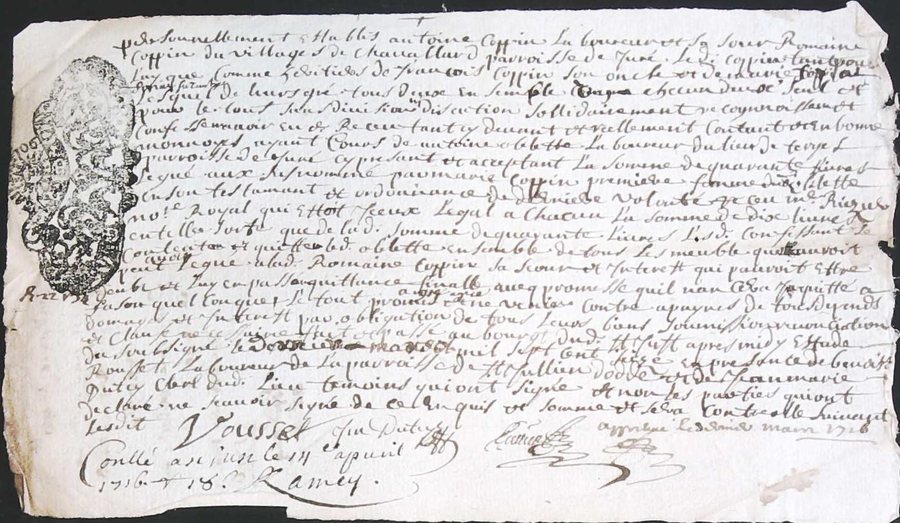 personnellement Establis antoine Coppin Laboureur et sa sœur Romaine
Coppin du villages de paroisse de Juré Led. Coppin tant pour
Luy que comme heritiers de françois Coppin son oncle et de marie Coppin
Lesquels de leurs gré tous deux en semble chacun deux seul et
pour le tout sans division discution sollidairement recognoissent et
Confessent avoir Eu et Receu tant cy devant et reellement Contant et en bonne
monnoye ayant Cours de antoine oblette Laboureur du lieu de
parroisse de Juré cy present et acceptant La somme de quarante Livres
Legué aux susnommé par marie Coppin premiere femme dud. oblette
en son testament et ordonnance de derniere volonté receu me
no.re Royal qui Estoit Leur Legat a Chacun La somme de dix Livres
en telle sorte que de lad. somme de quarante Livres Lesd. Confessant se
Contenter et quitter led. oblette ensemble de tous les meuble quil auroit
peut Legué a lad. Romaine Coppin sa sœur et Interest qui pourroit Estre
deubt et Luy en passe quittance avec promesse quil nen sera Inquitté a
fason quel Conque Le tout promis ne venir Contre apeynes de tous depends
Domages et Interest par obligation de tous Leurs biens soumission renonciation
et Clause fait et passé au bourg dud. St Just apres midy Estude
du soubsigné Le dernier mars mil sept Cent seize en presence de benoist
Rousset Laboureur de La parroisse de St Jullien et de Jean marie
Dutey Clert dud. Lieu temoins qui ont signé et non les parties qui ont
declaré ne scavoir signé de ce Enquis et sommé et sera Controllé suivant
Lesdit
approuvé Le dernier mars 1716
Vousset Jm Dutey
Conllé a st just le 14e apvril
1716 R 18 s. Ramey.